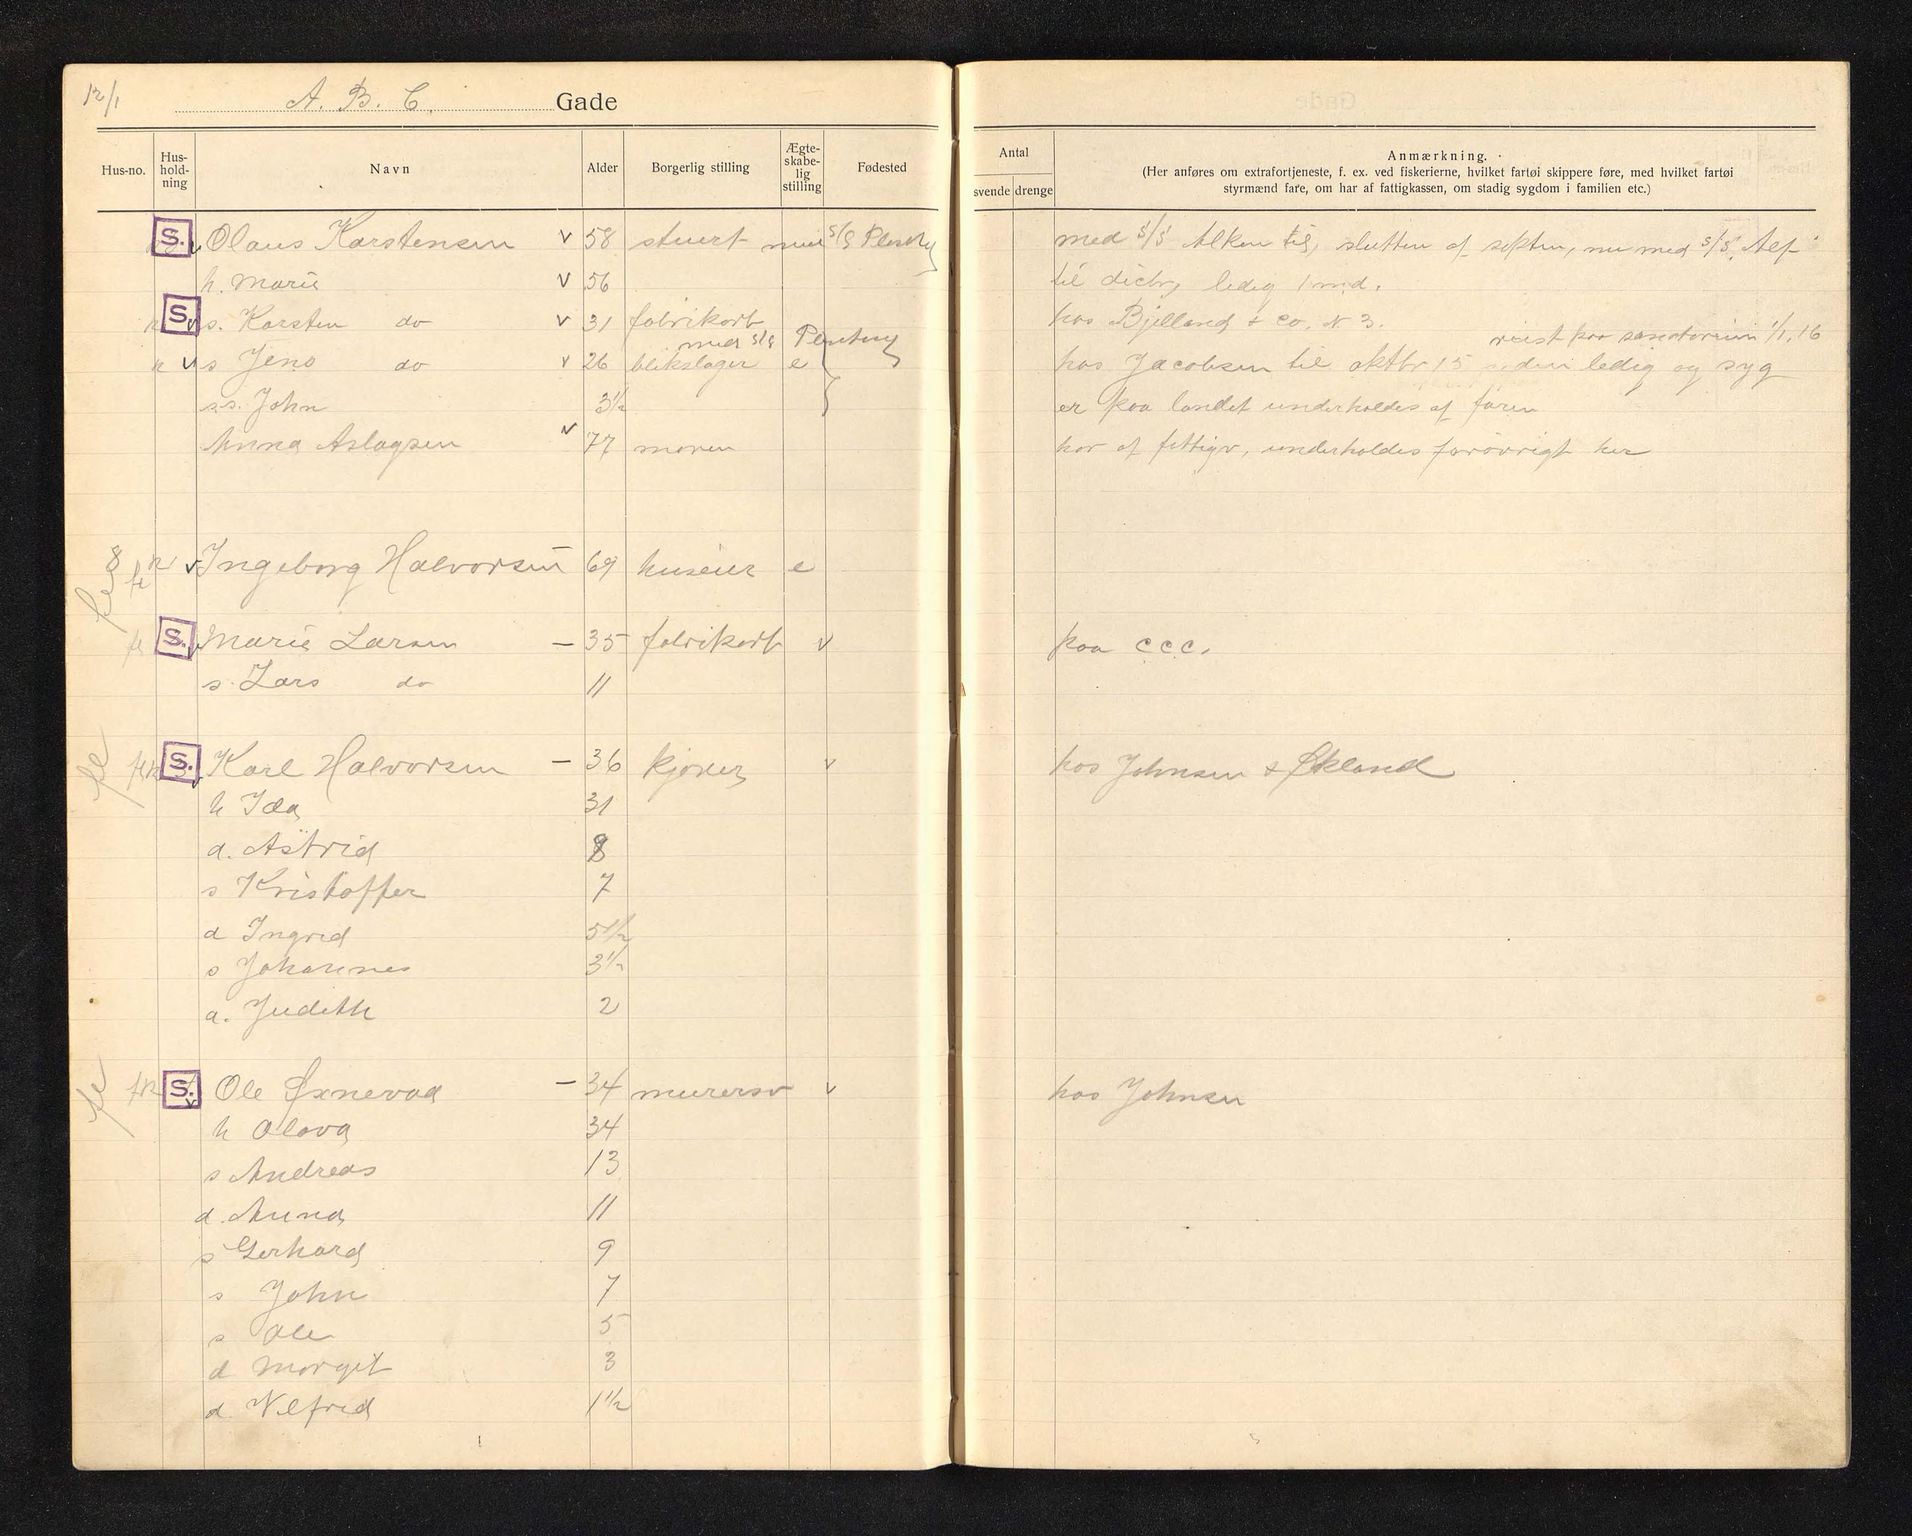 12/1 A. B. C. Gade
Hus-no. Hus-hold-ning Navn Alder Borgerlig stilling Ægte-skabe-lig stilling Fødested
Antal svende drenge
Anmærkning.
(Her anføres om extrafortjeneste, f. ex. ved fiskerierne, hvilket fartøi skippere føre, med hvilket fartøi
styrmænd fare, om har af fattigkassen, om stadig sygdom i familien etc.)
S. v Olaus Karstensen v 58 stuert med s/s med s/s Alken til slutten af septbr, nu med s/s "Alf"
h. Marie v 56 til dicbr, ledig 1 md.
n S. v s. Karsten do v 31 fabrikarb hos Bjelland & Co. N 3.
med s/s reist paa sanatorium 1/1, 16
n v s Jens do v 26 blikslager e hos Jacobsen til oktbr 15 siden ledig og syg
s.s. John 3½ er paa landet underholdes af faren
Anna Aslagsen v 77 moren har af fattigv, underholdes forøvrigt her
8 fl n v Ingeborg Halvorsen 69 huseier e
fl S. v Marie Larsen — 35 fabrikarb v paa CCC.
s. Lars do 11
fl n S. v Karl Halvorsen — 36 kjører v hos Johnsen & Økland
h Ida 31
d. Astrid 8
s Kristoffer 7
d Ingrid 5½
s Johannes 3½
d. Judith 2
fl n S. v Ole Øxnevad — 34 murersv v hos Johnsen
h Olava 34
s Andreas 13
d. Anna 11
s Gerhard 9
s John 7
s Ole 5
d Margit 3
d. Vilfrid 1½